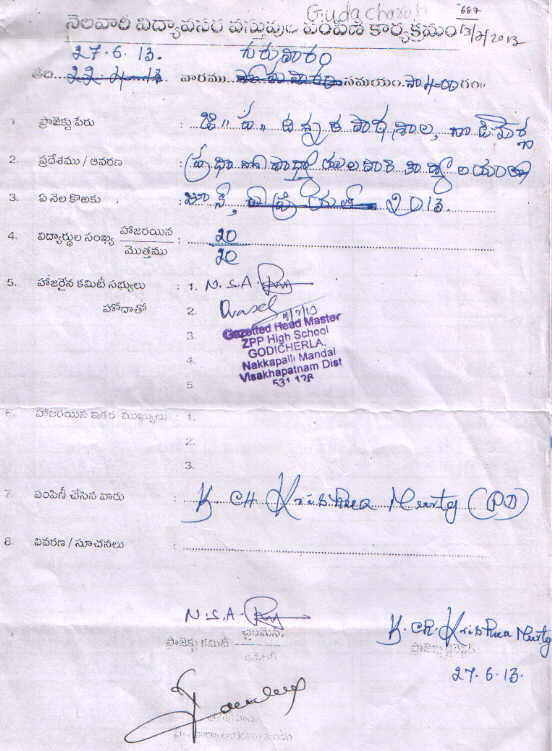 Gudachasch 667
13/7/2013
నెలవారి విద్యావసర వస్తువుల పంపిణీ కార్యక్రమం
27.6.13. గురువారం
తేది 22.4.13 వారము సమయం సా4=00 గం॥
1. ప్రాజెక్టు పేరు : జి॥ ప॥ ఉన్నత పాఠశాల, గొడిచెర్ల
2. ప్రదేశము / ఆవరణ : ప్రధానోపాధ్యాయులవారి కార్యాలయం
3. ఏ నెల కొఱకు : జూన్, ఏప్రియల్ 2013.
4. విద్యార్ధుల సంఖ్య హాజరయిన : 20
మొత్తము 20
5. హాజరైన కమిటీ సభ్యులు : 1. N.S.A.
హోదాతో 2. 9/7/13
3. Gazetted Head Master
ZPP High School
4. GODICHERLA,
Nakkapalli Mandal
5. Visakhapatnam Dist
531 126
6. హాజరయిన ఇతర ముఖ్యులు : 1.
2.
3.
7. పంపిణీ చేసిన వారు : K. CH Krishna Murty (PD)
8. వివరణ / సూచనలు :
N.S.A. K. CH. Krishna Murty
ప్రాజెక్టు కమిటీ ఛైర్మన్
27.6.13.